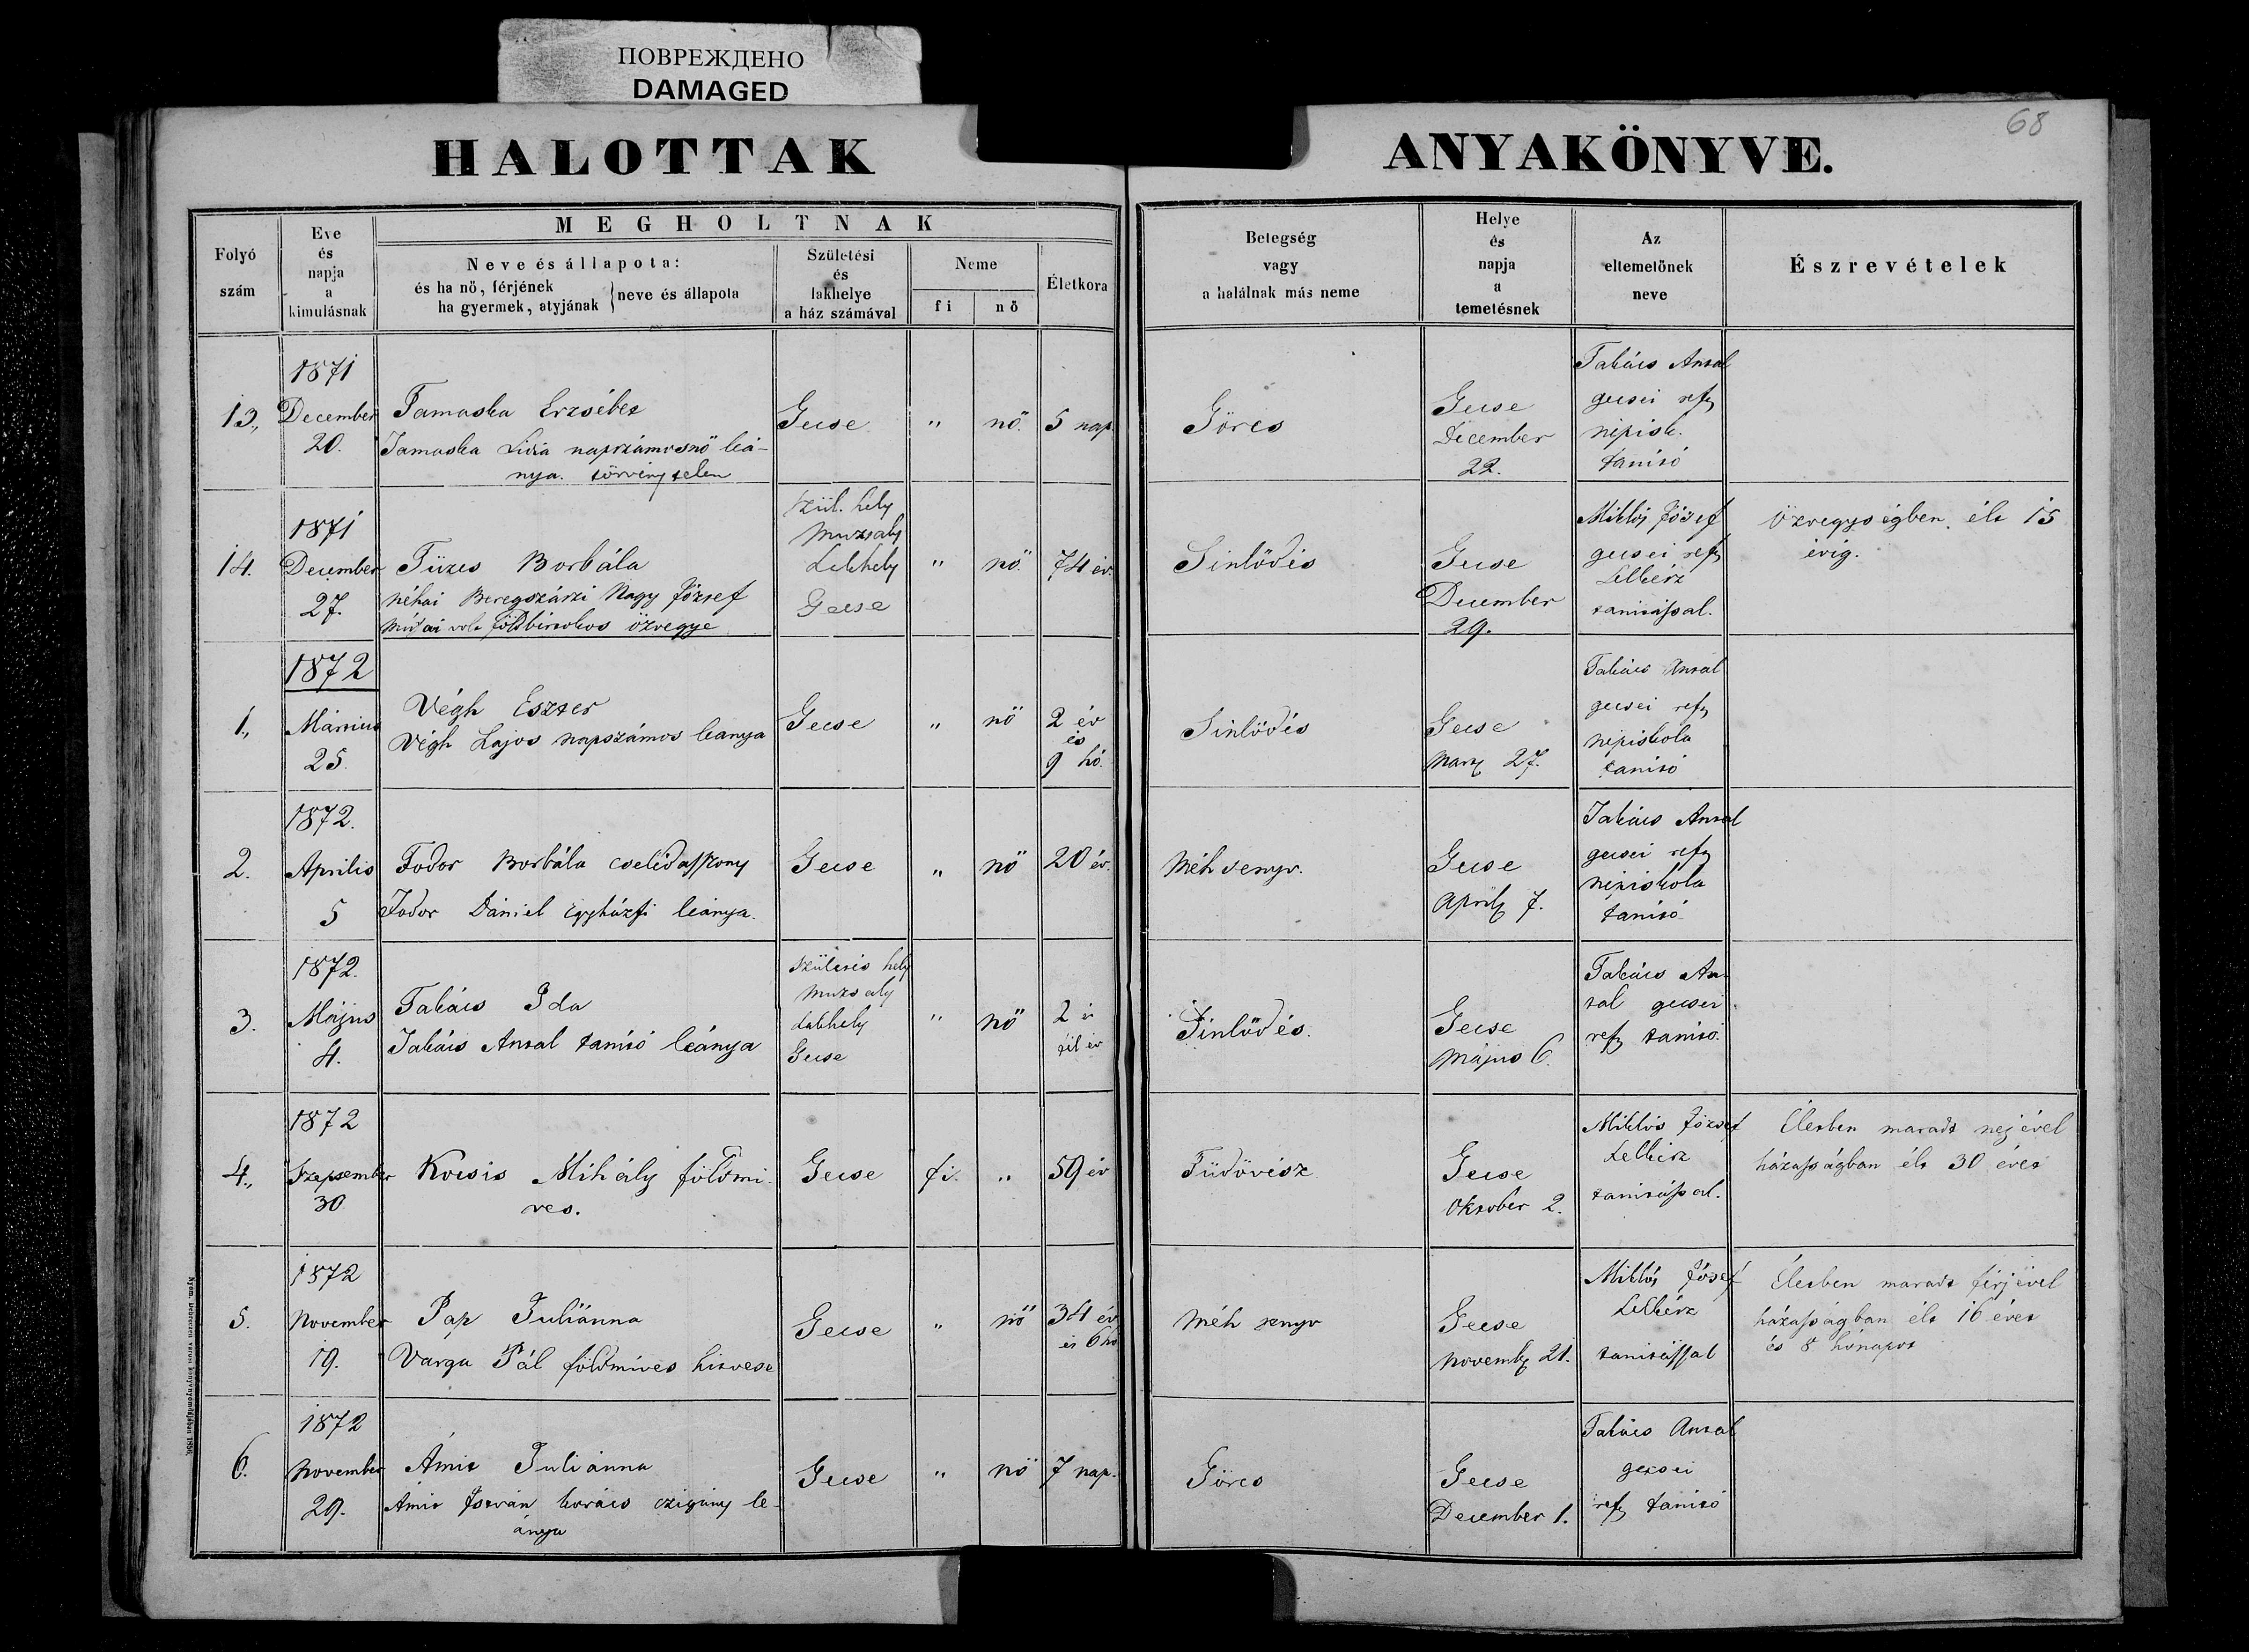 ПОВРЕЖДЕНО
DAMAGED
68
HALOTTAK
ANYAKÖNYVE.
Folyó
szám
Eve
és
napja
a
kimulásnak
MEGHOLTNAK
Neve és állapota:
és ha nő, férjének
ha gyermek, atyjának
neve és állapota
Születési
és
lakhelye
a ház számával
Neme
fi
nő
Életkora
Betegség
vagy
a halálnak más neme
Helye
és
napja
a
temetésnek
Az
eltemetőnek
neve
Észrevételek
13.,
1871
December
20.
Tamaska Erzsébet
Tamaska Lidia napszámosnő leá-
nya. törvénytelen
Gecse
"
nő.
5 nap.
Görcs
Gecse
December
22.
Takács Antal
gecsei ref
népisk.
tanitó
14.
1871
December
27.
Tüzes Borbála
néhai Beregszászi Nagy József
volt földbirtokos özvegye
Szül. hely
Muzsaly
Lakhely
Gecse
"
nő.
74 év.
Sinlődés
Gecse
December
29.
Miklós József
gecsei ref
Lelkész
tanitással.
Özvegységben élt 15
évig.
1.,
1872
Március
25.
Végh Eszter
Végh Lajos napszámos leanya
Gecse
"
nő
2 év
és
9 hó.
Sinlödés
Gecse
Marz 27.
Takács Antal
gecsei ref
népiskola
tanitó
2.
1872.
Aprilis
5
Fodor Borbála cselédasszony
Fodor Dániel Egyházfi leánya.
Gecse
"
nő
20 év.
Méh senyv.
Gecse
April 7.
Takács Antal
gecsei ref
népiskola
tanitó
3.
1872.
Május
4.
Takács Ida
Takács Antal tanitó leánya
Születés hely
Muzsaly
Lakhely
Gecse
"
nő
2 és
fél év
Sinlődés.
Gecse
Május 6.
Takács An-
tal gecsei
ref tanitó.
4.,
1872
Szeptember
30
Kocsis Mihály földmi-
ves.
Gecse
fi.
"
59 év
Tüdővész
Gecse
Oktober 2.
Miklós József
Lelkész
tanitással.
Életben maradt nejével
házasságban élt 30 évet
5.
1872
November
19.
Pap Juliánna
Varga Pál földmives hitvese
Gecse
"
nő
34 év
és 6 hó
Méh senyv
Gecse
Novemb 21.
Miklós József
Lelkész
tanitással
Életben maradt férjével
házasságban élt 16 évet
és 8 hónapot
6.
1872
November
29.
Ámit Juliánna
Amit István kovács czigány le-
ánya
Gecse
"
nő
7 nap.
Görcs
Gecse
December 1.
Takács Antal
gecsei
ref tanitó